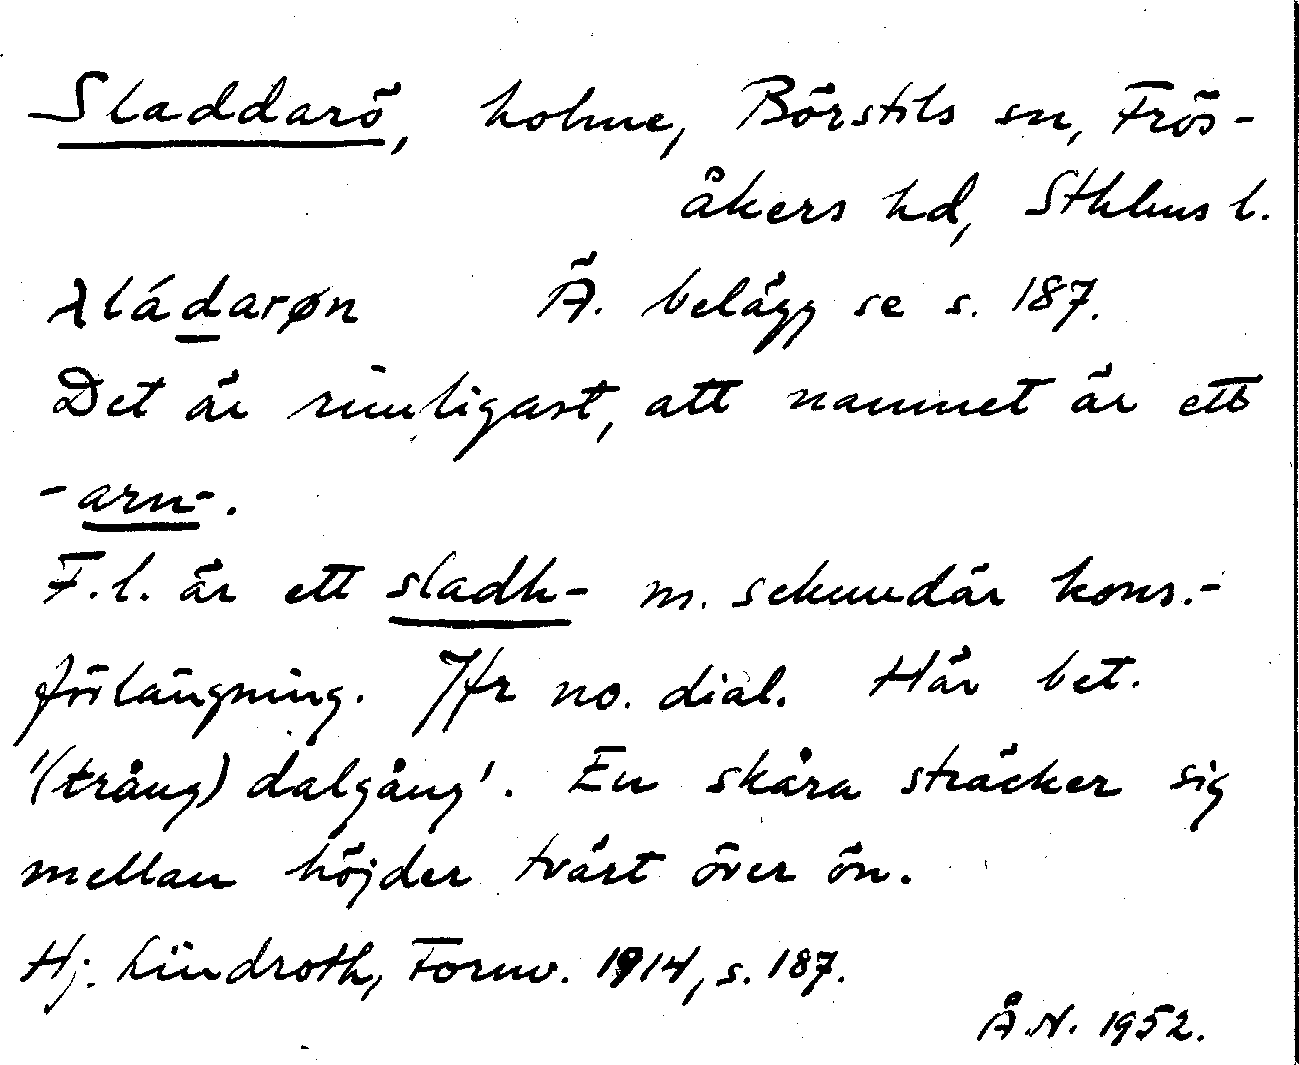 Sladdarö, holme, Börstils sn, Frös-
åkers hd, Sthlms l.
λládarøn Ä. belägg se s. 187.
Det är rimligast, att namnet är ett
-arn-.
F.l. är ett sladh- m. sekundär kons.-
förlängning. Jfr no. dial. Här bet.
'(trång) dalgång'. En skåra sträcker sig
mellan höjder tvärt över ön.
Hj. Lindroth, Fornv. 1914, s. 187.
Å.N. 1952.